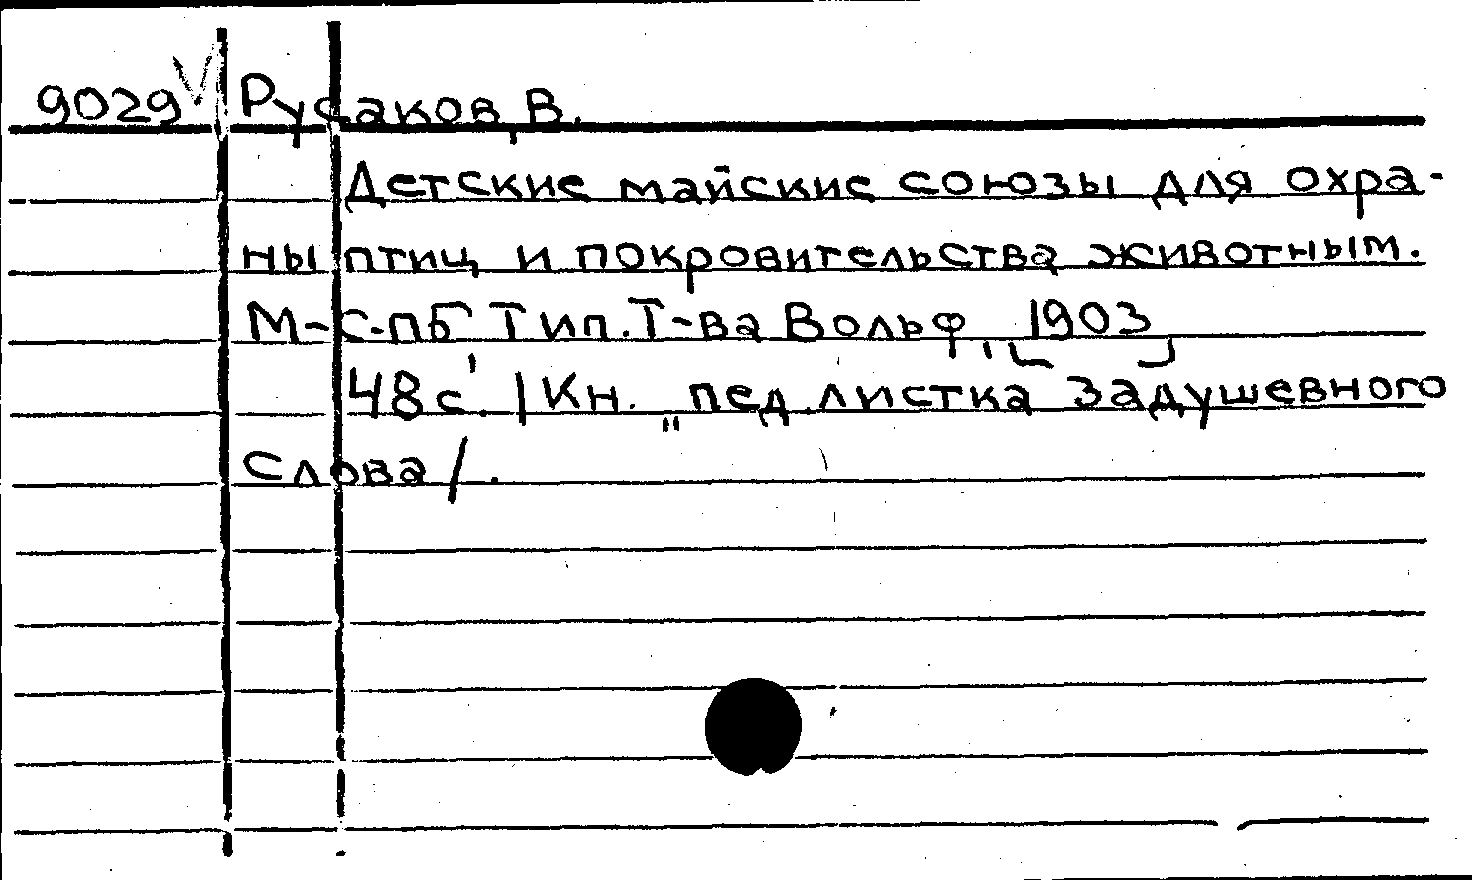 9029 Русаков, В.
Детские майские союзы для охра-
ны птиц и покровительства животным.
М-С-пб Тип. Т-ва Вольф, [1903]
48 с. / Кн. "пед. листка Задушевного
слова/.